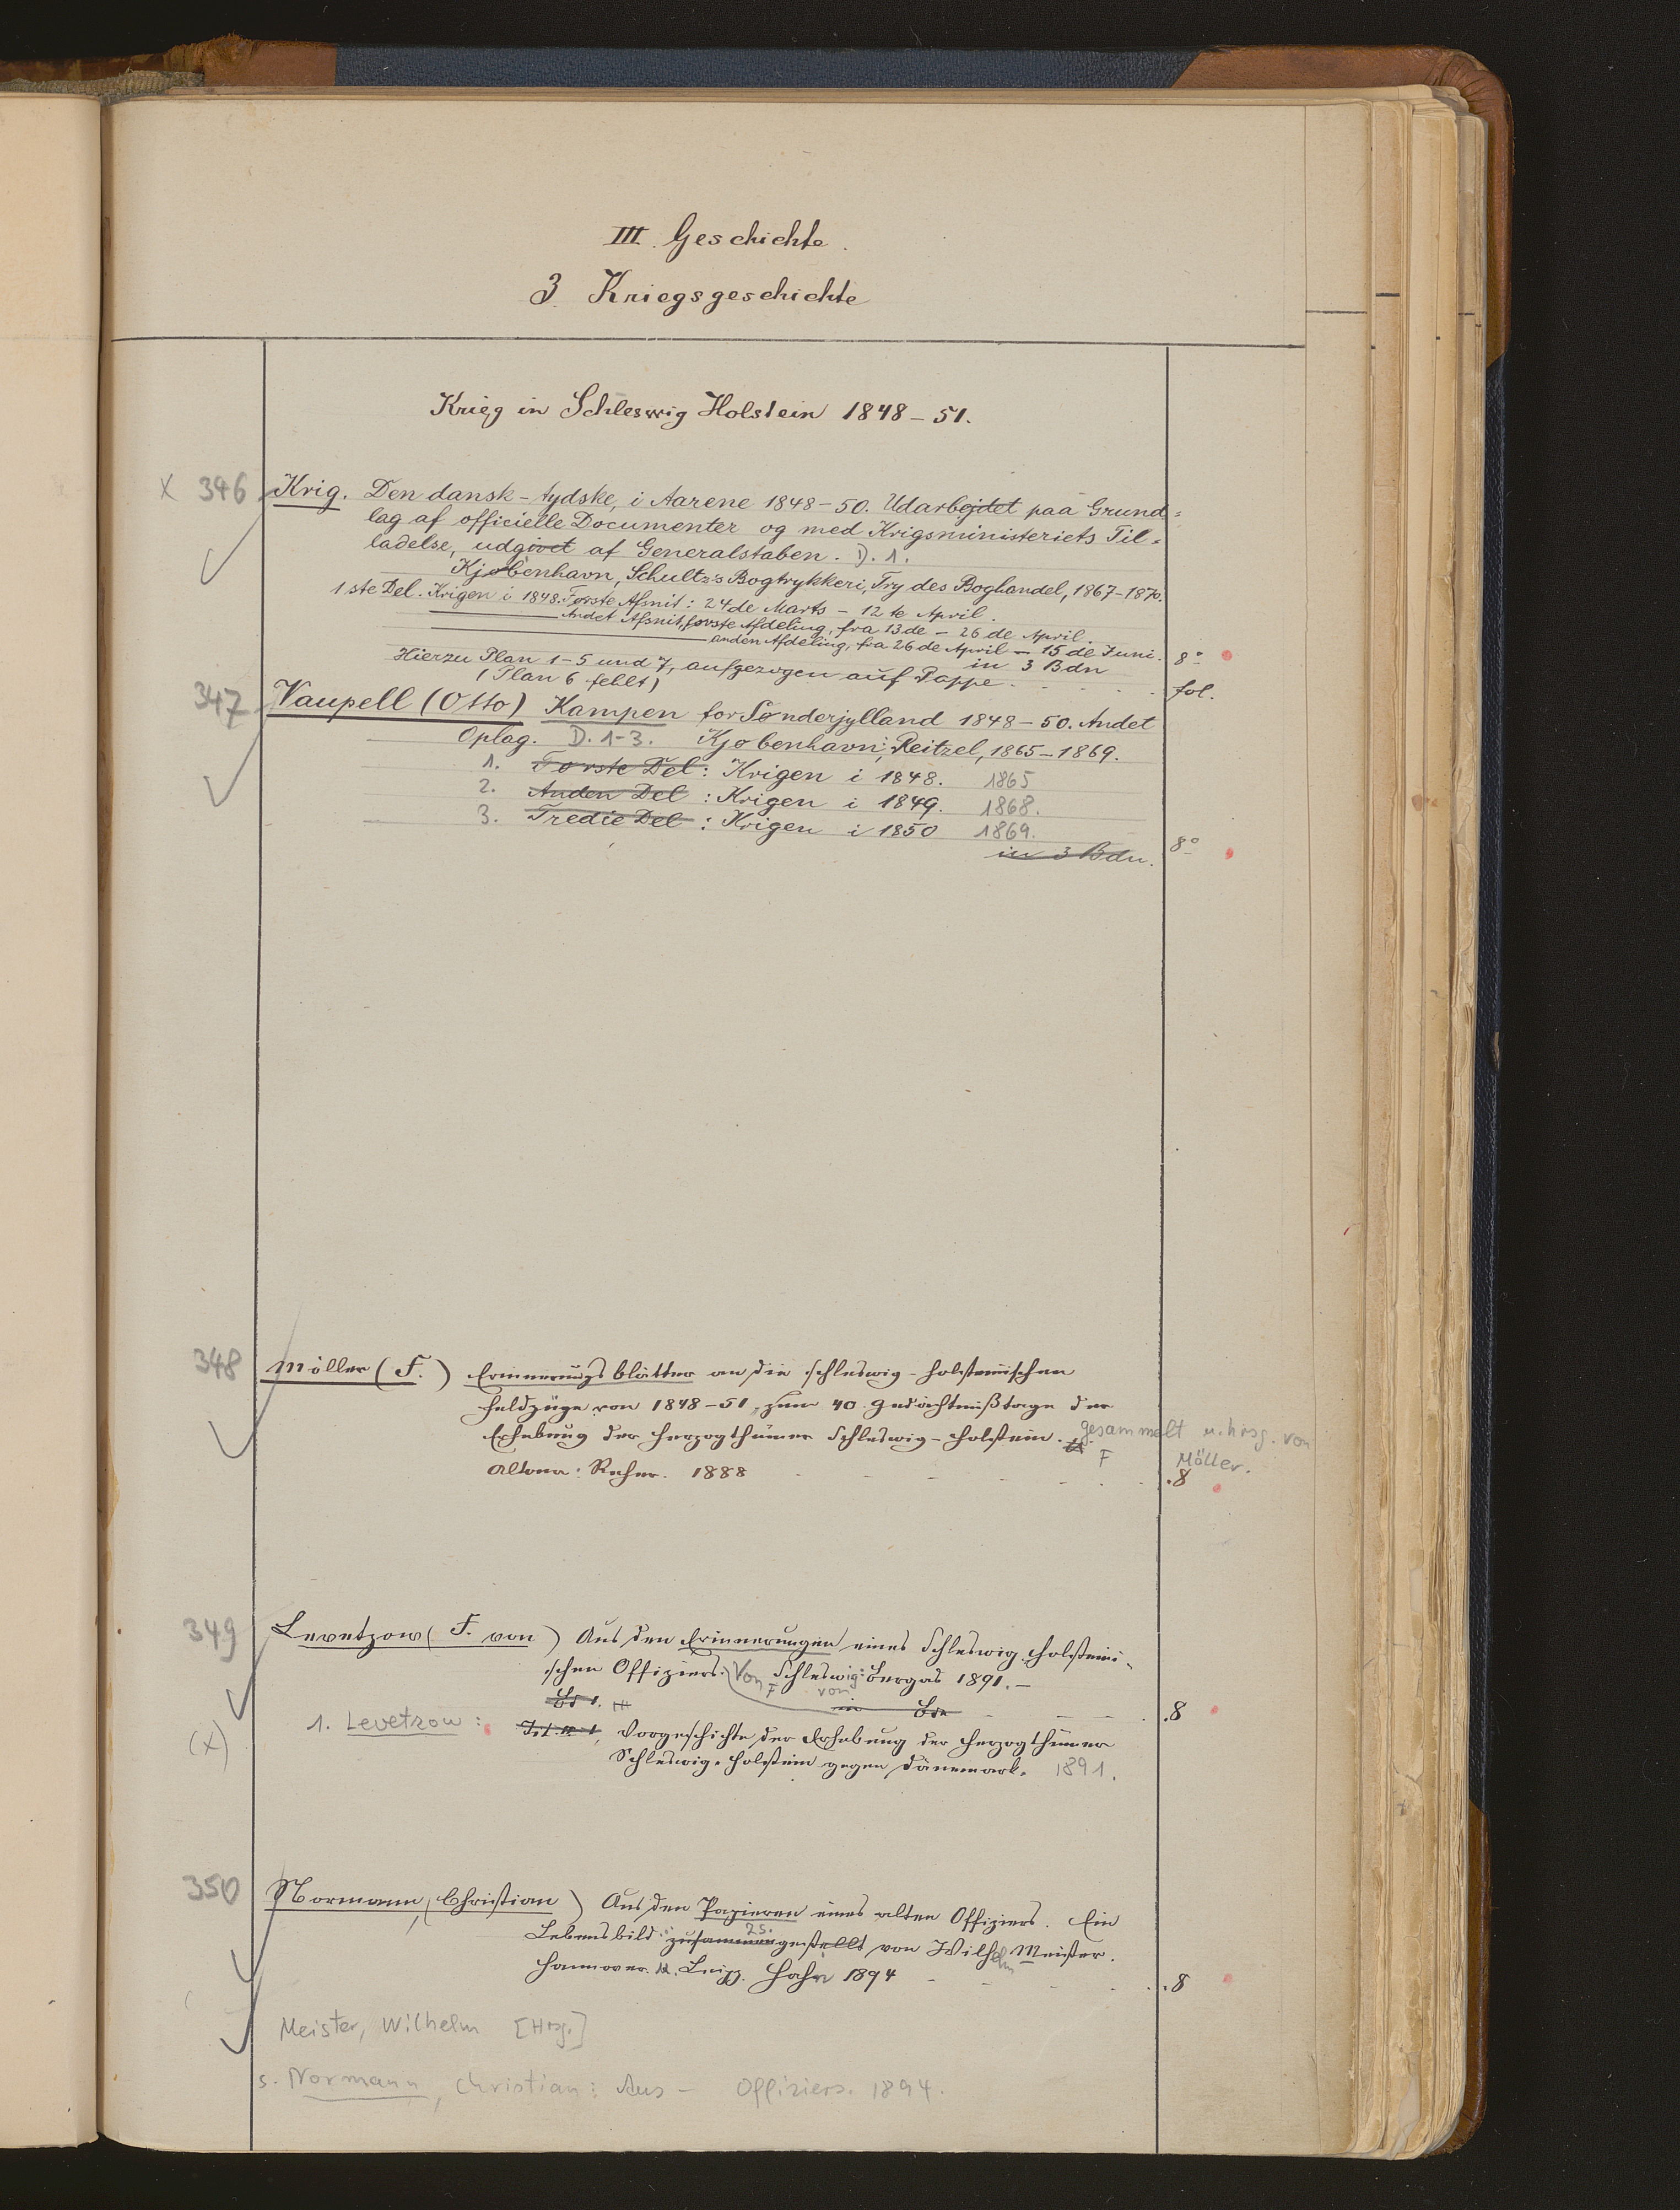 III. Geschichte.
3. Kriegsgeschichte
Krieg in Schleswig Holstein 1848-51.
X 346 Krig. Den dansk-tydske, i Aarene 1848-50. Udarbejdet paa Grund=
lag af officielle Documenter og med Krigsministeriets Til=
ladelse, udgivet af Generalstaben. D. 1.
Kjøbenhavn, Schultz's Bogtrykkeri, Try des Boghandel, 1867-1870.
1ste Del. Krigen i 1848. Første Afsnit: 24de Marts - 12te April.
Andet Afsnit, første Afdeling, fra 13de - 26de April.
anden Afdeling, fra 26de April - 15 de Juni.
in 3 Bdn 8°
Hierzu Plan 1-5 und 7, aufgezogen auf Pappe. fol.
(Plan 6 fehlt)
347 Vaupell (Otto) Kampen for Sønderjylland 1848-50. Andet
Oplag. D. 1-3. Kjøbenhavn: Reitzel, 1865-1869.
1. Første Del: Krigen i 1848. 1865
2. Anden Del: Krigen i 1849. 1868.
3. Tredie Del: Krigen i 1850 1869.
in 3 Bdn. 8°
348 Möller (F.) Erinnerungsblätter an die schleswig-holsteinischen
Feldzüge von 1848-51, zum 40. Gedächtnißtage der
Erhebung der Herzogthümer Schleswig-Holstein. gesammelt u. hrsg. von
F Möller.
Altona: Reher. 1888 8
349 Levetzow (F. von) Aus den Erinnerungen eines Schleswig-Holsteini-
schen Offiziers. Von F von Schleswig: Bergas 1891.-
Bd 1. in Bdn 8
(x) 1. Levetzow: Vorgeschichte der Erhebung der Herzogthümer
Schleswig-Holstein gegen Dänemark. 1891.
350 Normann, (Christian) Aus den Papieren eines alten Offiziers. Ein
Lebensbild zusammengestellt zs. von Wilhelm Meister.
Hannover u. Leipz. Hahn 1894 8
Meister, Wilhelm [Hrsg.]
s. Normann, Christian: Aus - Offiziers. 1894.